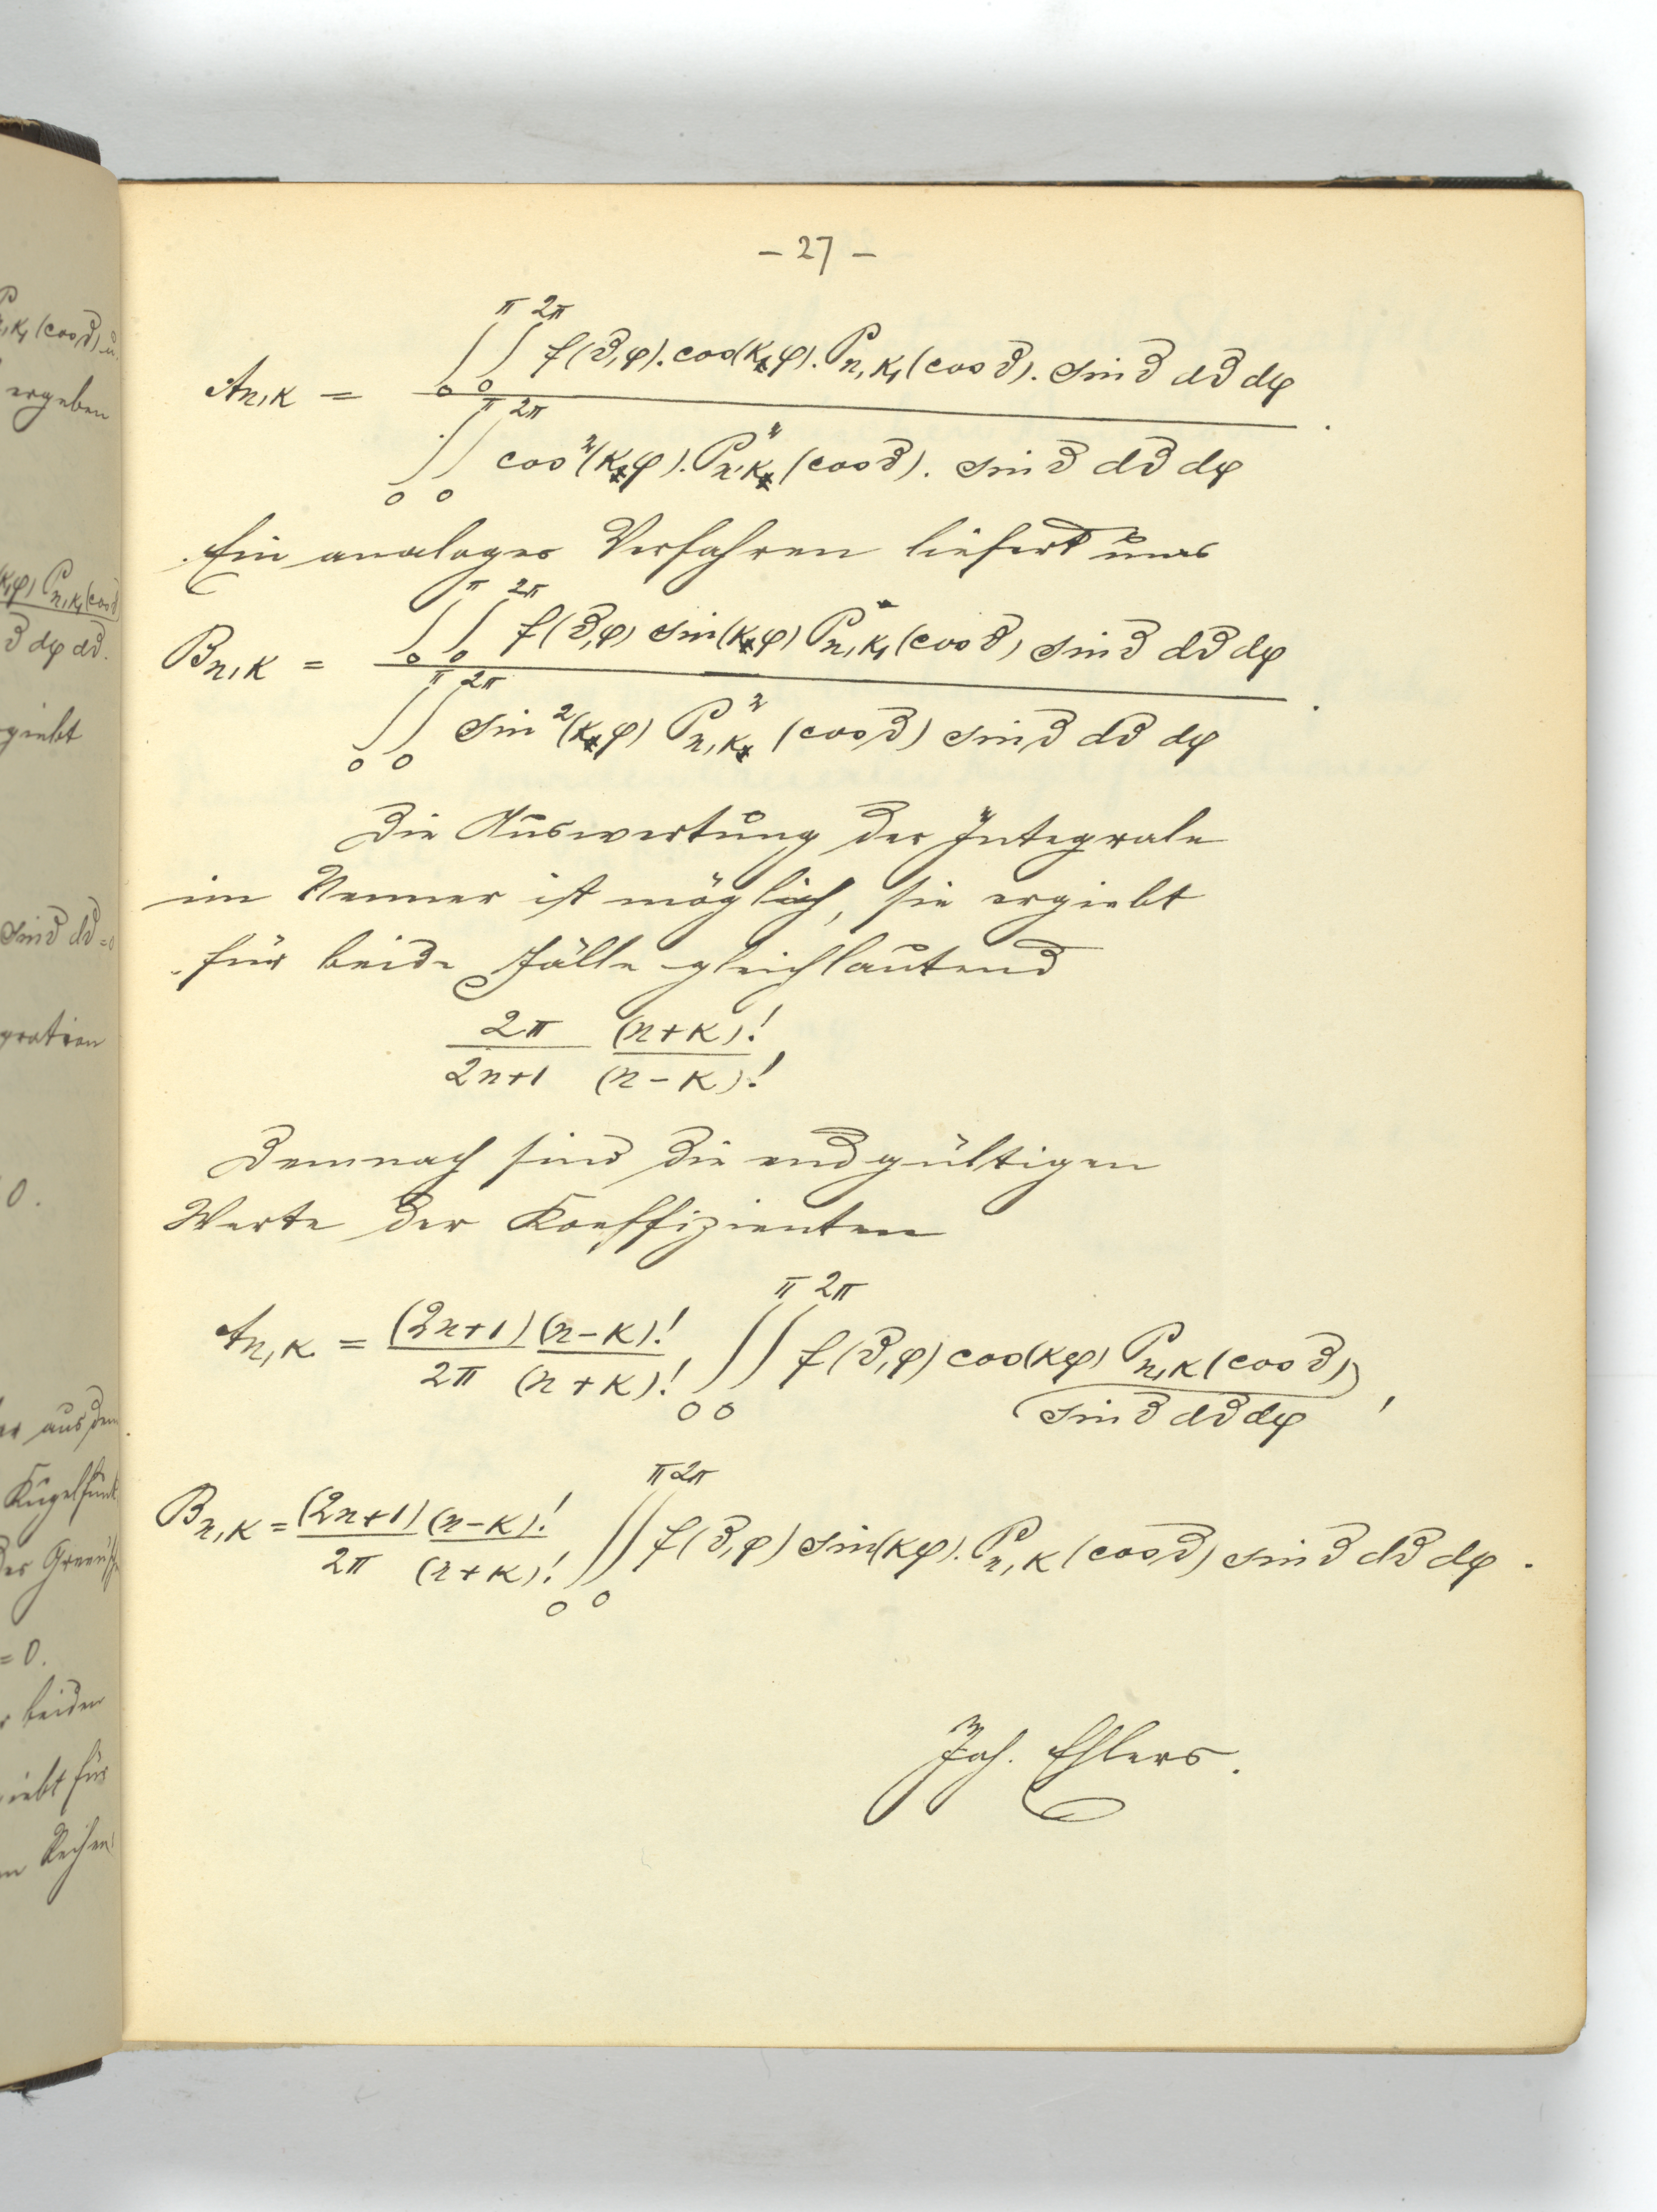 – 27 –
A_{n,k} = \frac{\int_0^π \int_0^{2π} f(ϑ,φ). cos(kφ). P_{n,k_1}(cos ϑ). sin ϑ dϑ dφ}{\int_0^π \int_0^{2π} cos^2(kφ). P_{n,k}^2(cos ϑ). sin ϑ dϑ dφ}.
Ein analoges Verfahren liefert uns
B_{n,k} = \frac{\int_0^π \int_0^{2π} f(ϑ,φ) sin(kφ) P_{n,k_1}(cos ϑ) sin ϑ dϑ dφ}{\int_0^π \int_0^{2π} sin^2(kφ) P_{n,k}^2(cos ϑ) sin ϑ dϑ dφ}.
Die Auswertung der Integrale
im Nenner ist möglich, sie ergiebt
für beide Fälle gleichlautend
\frac{2π}{2n+1} \frac{(n+k)!}{(n-k)!}
Demnach sind die endgültigen
Werte der Koeffizienten
A_{n,k} = \frac{(2n+1)}{2π} \frac{(n-k)!}{(n+k)!} \int_0^π \int_0^{2π} f(ϑ,φ) cos(kφ) P_{n,k}(cos ϑ)
sin ϑ dϑ dφ,
B_{n,k} = \frac{(2n+1)}{2π} \frac{(n-k)!}{(n+k)!} \int_0^π \int_0^{2π} f(ϑ,φ) sin(kφ). P_{n,k}(cos ϑ) sin ϑ dϑ dφ.
Joh. Ehlers.
ergeben
giebt
0.
= 0.
beiden